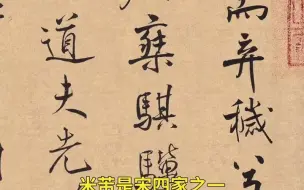 而弃穢
棄騏
道夫老
米芾是宋四家之一